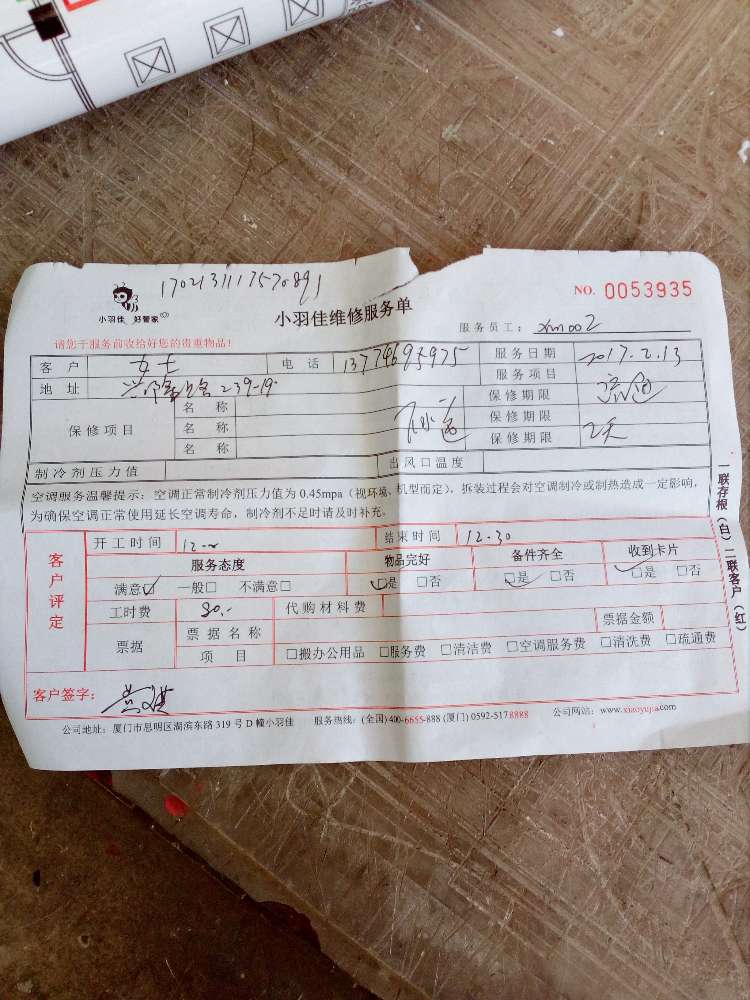 1702131113570891
NO. 0053935
小羽佳 好管家
小羽佳维修服务单
服务员工： xm002
请您于服务前收给好您的贵重物品！
客 户 女士 电 话 服务日期 2017.2.13
地 址 239-19 服务项目 疏通
保修项目 名 称 下水道 保修期限
名 称 保修期限 2天
名 称 保修期限
制冷剂压力值 出风口温度
空调服务温馨提示：空调正常制冷剂压力值为 0.45mpa（视环境、机型而定），拆装过程会对空调制冷或制热造成一定影响，
为确保空调正常使用延长空调寿命，制冷剂不足时请及时补充。
一联存根（白）二联客户（红）
客户评定
开工时间 结束时间 12.30
服务态度 物品完好 备件齐全 收到卡片
满意☑ 一般□ 不满意□ ☑是 □否 ☑是 □否 ☑是 □否
工时费 80.- 代购材料费
票据 票据名称 票据金额
项 目 □搬办公用品 □服务费 □清洁费 □空调服务费 □清洗费 □疏通费
客户签字：
公司地址：厦门市思明区湖滨东路 319 号 D 幢小羽佳 服务热线：(全国)400-6655-888 (厦门) 0592-5178888 公司网站：www.xiaoyujia.com